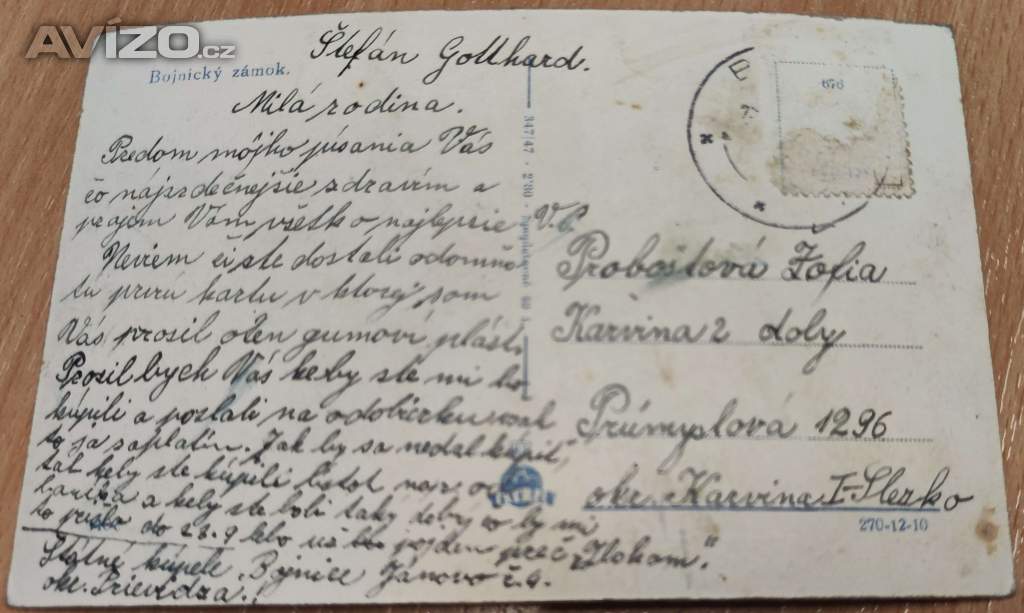 AVÍZO.cz
Štefán Gotthard.
Bojnický zámok.
Milá rodina.
Predom môjho písania Vás
čo najsrdečnejšie zdravím a
prajem Vám všetko najlepšie
Neviem či ste dostali odomňa
tu prvú kartu v ktorej som
Vás prosil o len gumoví plášť.
Prosil bych Vás keby ste mi ho
kúpili a poslali na odobierku
to já zaplatím. Jak by sa nedal kúpiť,
tak keby ste kúpili
a keby ste boli taky dobrý co by mi
ho prišla do 28.9 lebo už pojdem preč "Ztohom".
Štátné kúpele "Bojnice Jánovo č.4.
okr. Prievidza.!
347/47 - 2'80
V.P.
Proboštová Zofia
Karvina 2 doly
Prúmyslová 1296
okr. Karvina I-Slezko
270-12-10
676